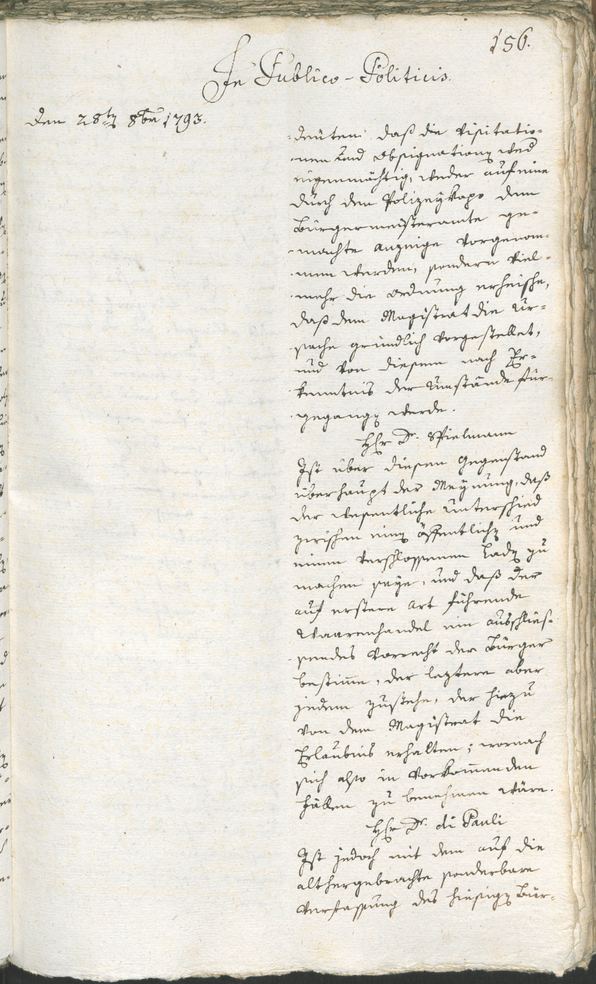 156.
In Publico-Politicis.
den 28ten 8ber 1793.
deuten: daß die Visitatio-
nen und Obsignationen weder
eigenmächtig, weder auf eine
durch den Polizeykaps dem
Bürgermeisteramte ge-
machte Anzeige vorgenom-
men werden, sondern viel-
mehr die Ordnung erheische,
daß dem Magistrat die Ur-
sache gründlich vorgestellet,
und von diesem nach Er-
kenntnis der Umstände für-
gegangen werde.
Hr Dr. Spielmann
Ist über diesen Gegenstand
überhaupt der Meynung, daß
der wesentliche Unterschied
zwischen einem öffentlichen und
einem verschlossenen Laden zu
machen seye, und daß der
auf erstere Art führende
Waarenhandel ein ausschlies-
sendes Vorrecht der Bürger
bestimme, der leztere aber
jedem zustehe, der hiezu
von dem Magistrat die
Erlaubnis erhalten; wornach
sich also in vorkommenden
Fällen zu benehmen wäre.
Hr Dr. di Pauli
Ist jedoch mit dem auf die
althergebrachte sonderbare
Verfassung des hiesigen Bür-